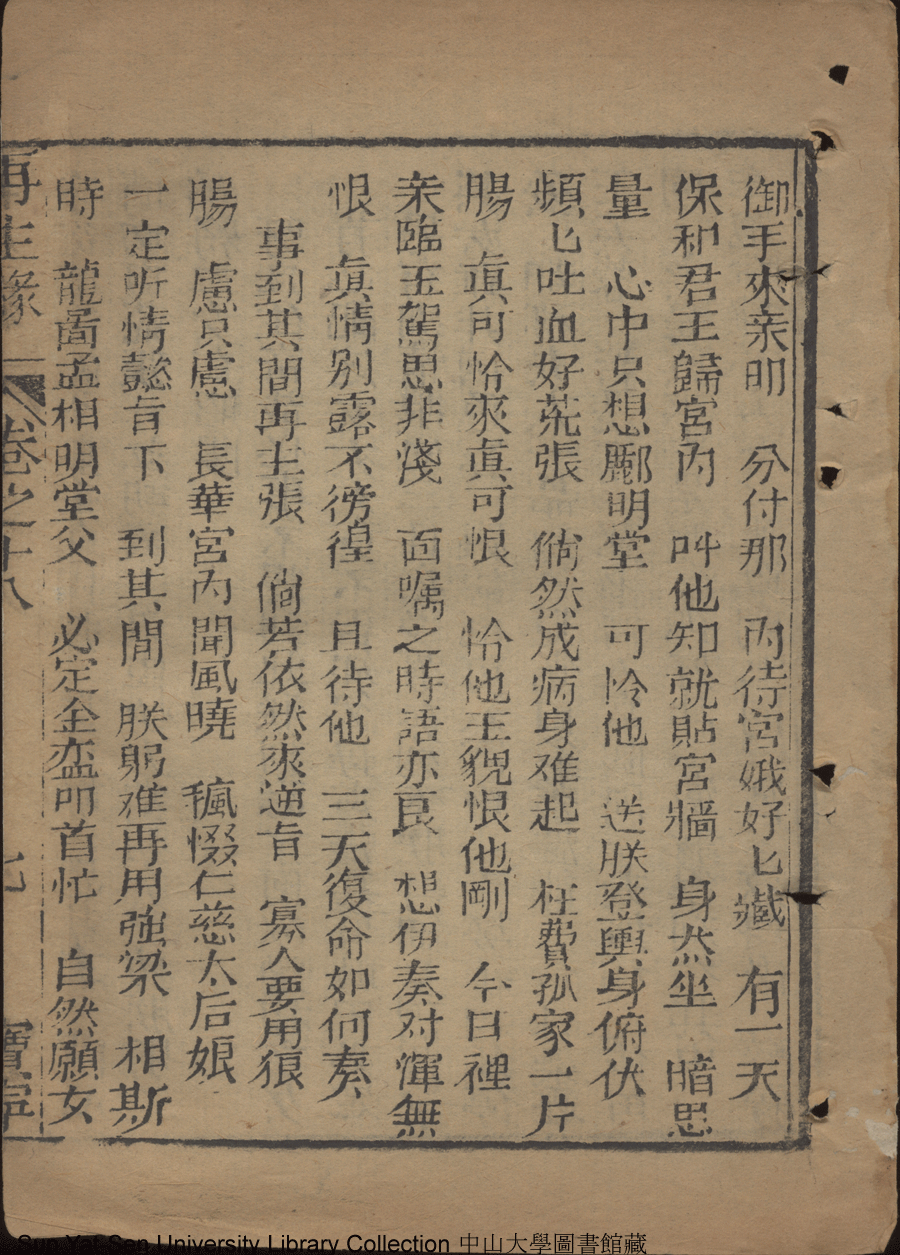 御手來亲叩　分付那　內待宮娥好匕藏　有一天
保和君王歸宮內　叫他知就貼宮牆　身烋坐　暗思
量　心中只想酈明堂　可怜他　送朕登輿身俯伏
頻匕吐血好荒張　倘然成病身难起　枉費孤家一片
腸　眞可恰來眞可恨　恰他玉貌恨他剛　今日裡
亲臨玉駕思非淺　面嘱之時語亦良　想伊奏对渾無
恨　眞情别露不徬徨　且待他　三天復命如何奏
事到其間再主張　倘若依然來逆旨　寡人要用狠
腸　慮只慮　長華宮內聞風曉　㼈惙仁慈太后娘
一定听情懿旨下　到其間　朕躬难再用強梁　相斯
時　龍啚孟相明堂父　必定金盔叩首忙　自然願女
再生緣　卷之十八　七　寶寧
Sun Yat-Sen University Library Collection 中山大學圖書館藏